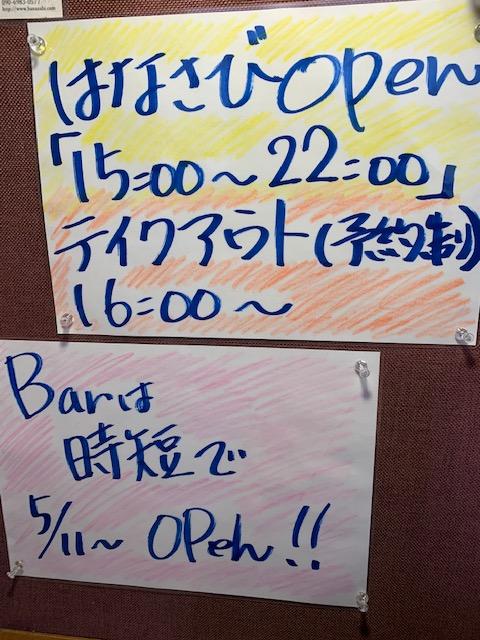 090-6983-0577
はなさび Open
「15:00～22:00」
テイクアウト(予約制)
16:00～
Barは
時短で
5/11～ OPen!!